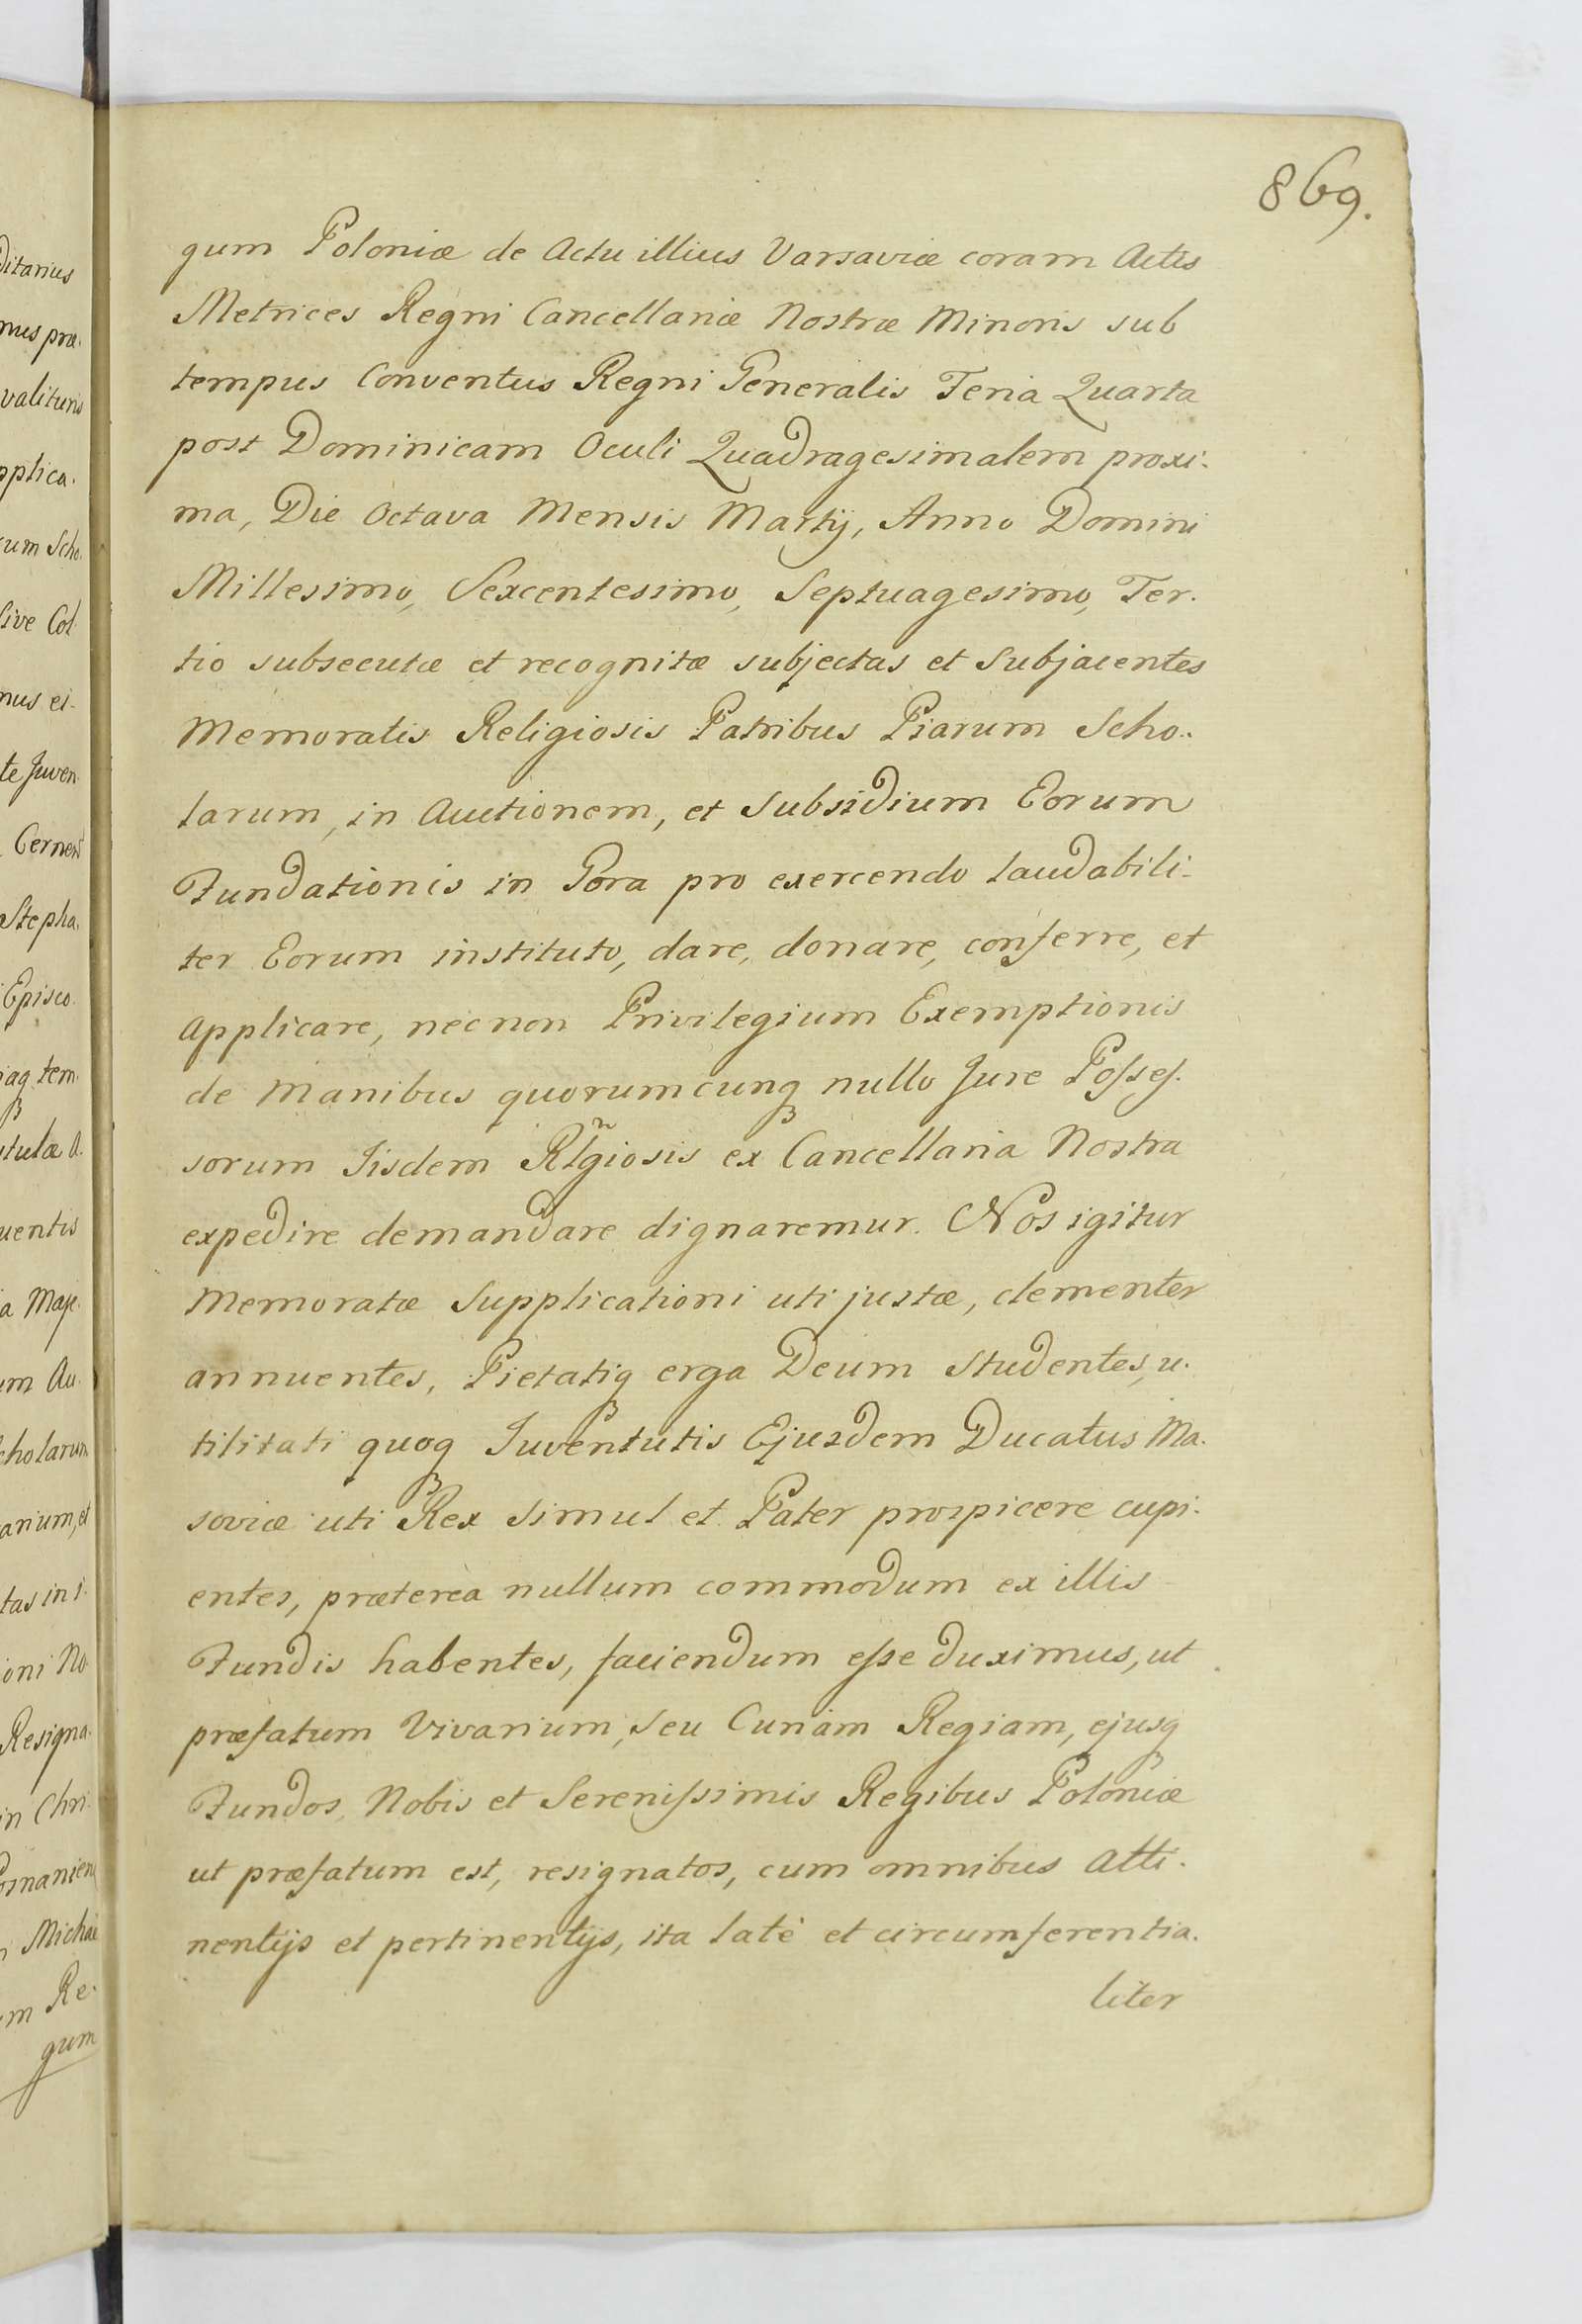 869.
gum Poloniæ de Actu illius Varsaviæ coram Actis
Metrices Regni Cancellariæ Nostræ Minoris sub
tempus Conventus Regni Generalis Feria Quarta
post Dominicam Oculi Quadragesimalem proxi-
ma, Die Octava Mensis Martij, Anno Domini
Millesimo, Sexcentesimo, Septuagesimo, Ter-
tio subsecutæ et recognitæ subjectas et Subjacentes
Memoratis Religiosis Patribus Piarum Scho-
larum, in Auctionem, et Subsidium Eorum
Fundationis in Gora pro exercendo laudabili-
ter Eorum instituto, dare, donare, conferre, et
Applicare, necnon Privilegium Exemptionis
de Manibus quorumcunqꝫ nullo Jure Posses-
sorum Iisdem Rlg̃iosis ex Cancellaria Nostra
expedire demandare dignaremur. Nos igitur
Memoratæ Supplicationi uti justæ, clementer
annuentes, Pietatiqꝫ erga Deum studentes, u-
tilitati quoqꝫ Iuventutis Ejusdem Ducatus Ma-
soviæ uti Rex simul et Pater prospicere cupi-
entes, præterea nullum commodum ex illis
Fundis habentes, faciendum esse duximus, ut
præfatum Vivarium, seu Curiam Regiam, ejusqꝫ
Fundos, Nobis et Serenissimis Regibus Poloniæ
ut præfatum est, resignatos, cum omnibus Atti-
nentijs et pertinentijs, ita latè et circumferentia-
liter
ditarius
mus præ-
valituris
pplica-
rum Scho-
sive Col
mus ei-
te Juven
Cernens
Stepha-
Episco-
iaqꝫ tem-
itulæ A-
uentis
a Maje-
um Au-
cholarum
arium, et
tas in s-
ioni No-
Resigna-
in Chri-
osnanien
Michae
m Re-
gum